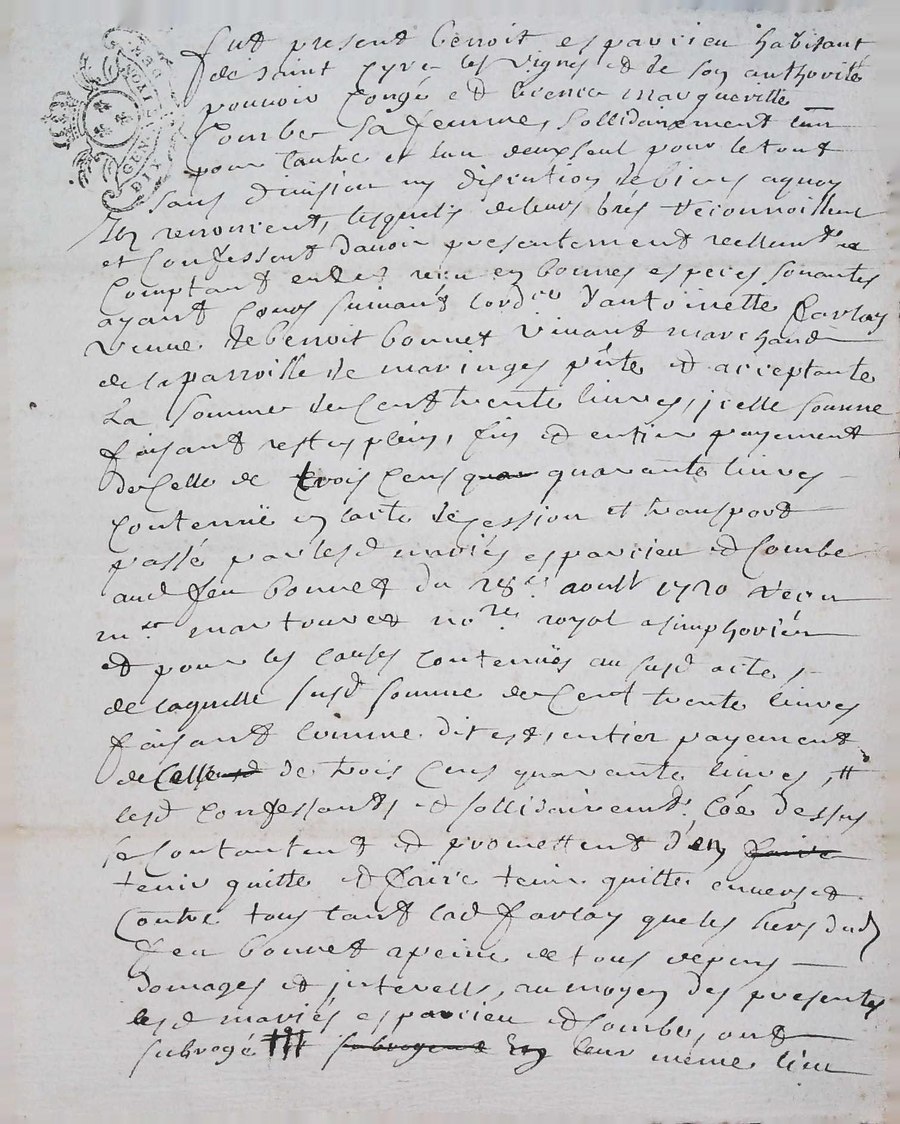 GEN. LYON
DIX DEN.
fut present benoit esparcieu habitant
de saint Cyre les Vignes et de son authorité
pouvoir Congé et licence margueritte
Combe sa femme, sollidairement lun
pour lautre et lun deux seul pour le tout
sans division ny discution de biens aquoy
Ils renoncent, lesquels de leurs grés reconnoissent
et Confessent davoir presentement reellemt et
Comptant eu et reçu en bonnes especes sonantes
ayant Cours suivant lordce d'antoinette farlay
veuve de benoit bonnet vivant marchand
de la parroisse de maringes pnte et acceptante
La somme de Cent trente livres, jcelle somme
faisant reste plein, fin et entier payement
de Celle de trois Cens quar quarante livres
Contenuë en lacte de Cession et transport
passé par lesd mariés esparcieu et Combe
aud feu bonnet du 28e aoust 1720 reçu
me martouret nore royal a simphorien
et pour les causes Contenuës au susd acte,
de laquelle susd somme de Cent trente livres
faisant Comme dit est entier payement
de Celle de trois Cens quarante livres,
lesd Confessants et sollidairemt Coe dessus
se Contentent et promettent d'en faire
tenir quitte et faire tenir quitte envers et
Contre tous tant lad farlay que les hers dud
feu bonnet a peine de tous depens
domages et jnterests, au moyen des presentes
lesd mariés esparcieu et Combe, ont
subrogé subrogent en leur même lieu